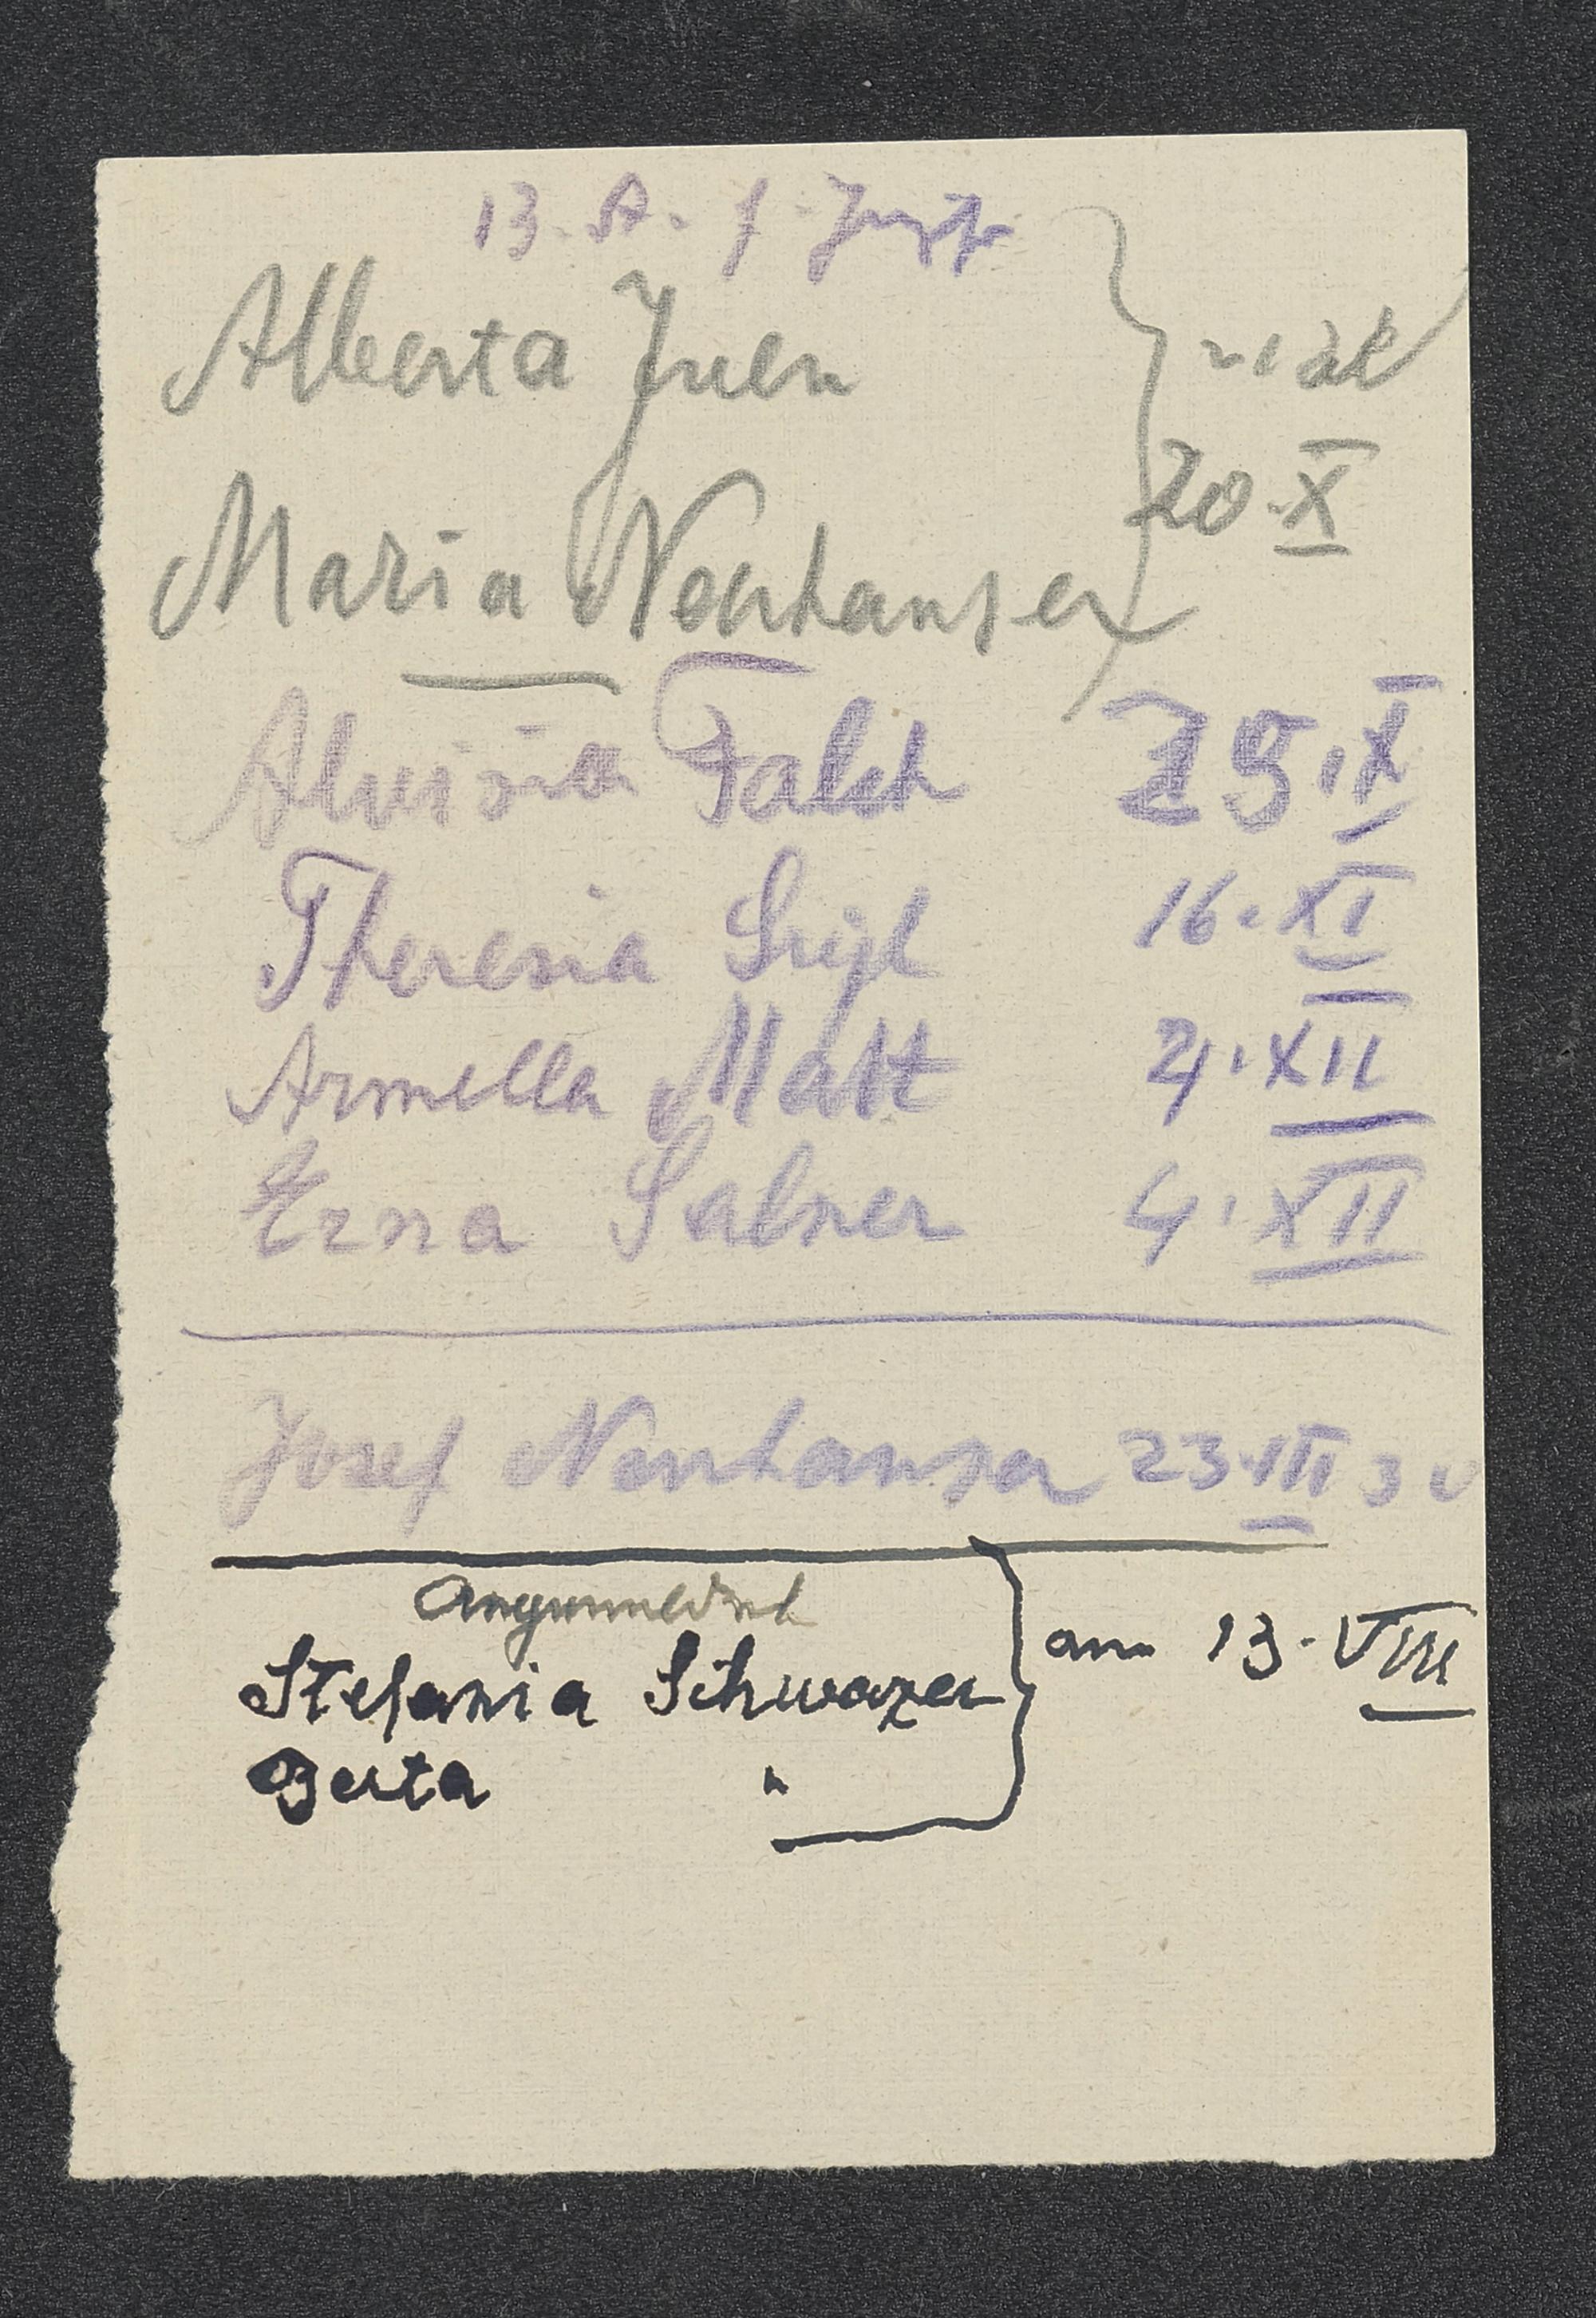 13. A. f. Josf
Alberta Juen
20. X
Maria Neuhauser
Aluisia Falch 25. X
Theresia Sigl 16. XI
Armella Matt 2. XII
Erna Salner 4. XII
Josef Neuhauser 23. VIII 30
Stefania Schwazer am 13. VIII
Berta "